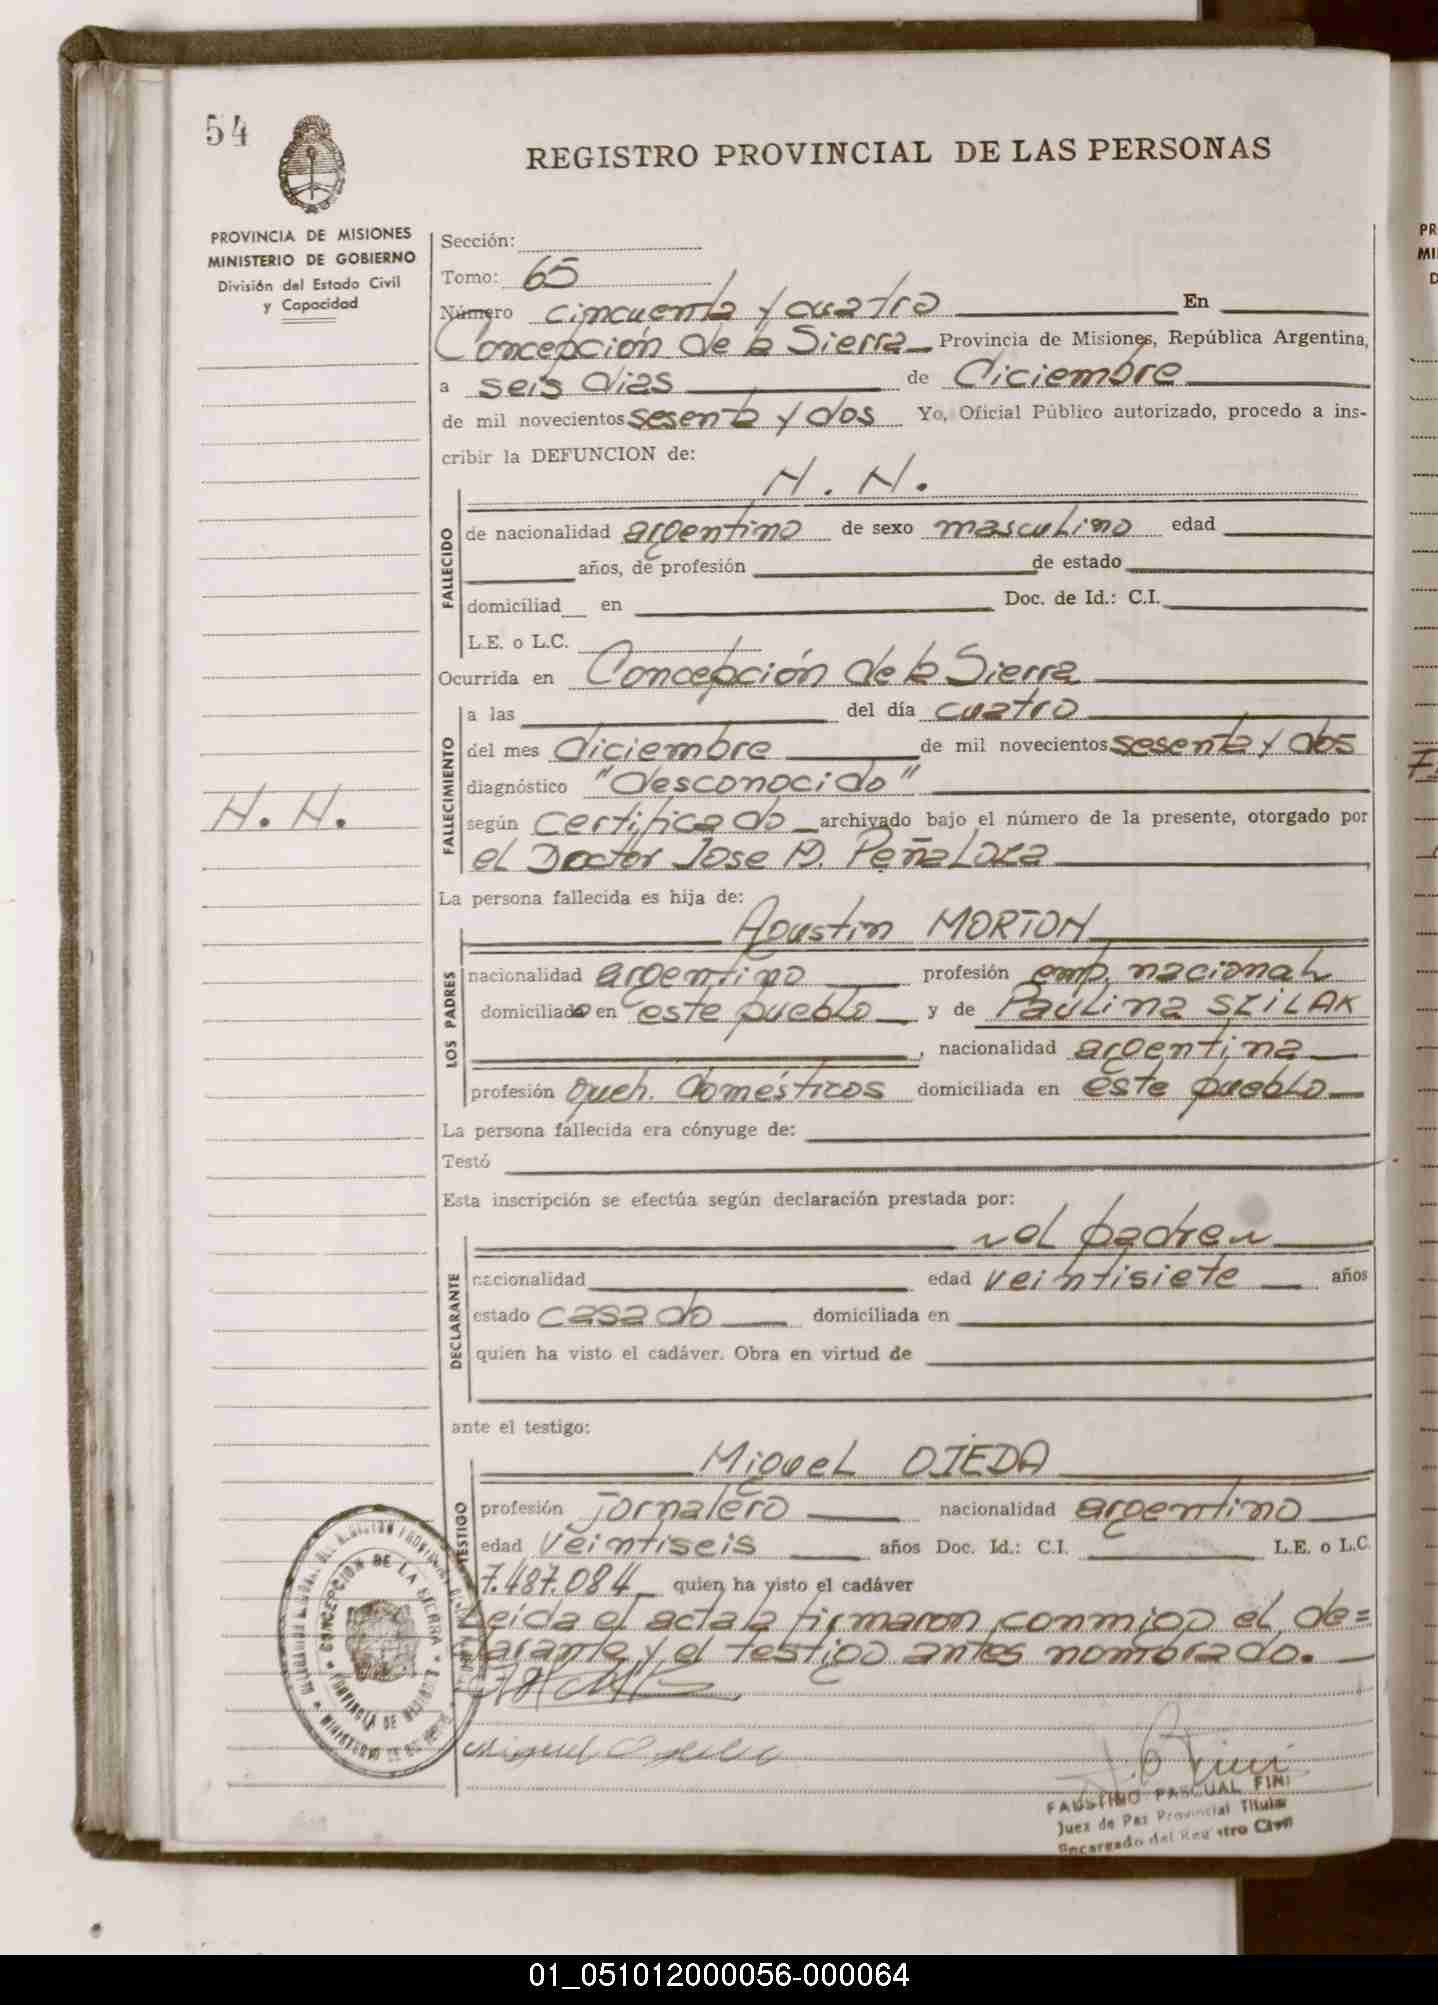 54
REGISTRO PROVINCIAL DE LAS PERSONAS
PROVINCIA DE MISIONES
MINISTERIO DE GOBIERNO
División del Estado Civil
y Capacidad
Sección:
Tomo: 65
Número cincuenta y cuatro En
Concepción de la Sierra Provincia de Misiones, República Argentina,
a seis dias de Diciembre
de mil novecientos sesenta y dos Yo, Oficial Público autorizado, procedo a ins-
cribir la DEFUNCION de:
N. N.
FALLECIDO
de nacionalidad argentino de sexo masculino edad
años, de profesión de estado
domiciliad en Doc. de Id.: C.I.
L.E. o L.C.
Ocurrida en Concepción de la Sierra
FALLECIMIENTO
a las del día cuatro
del mes diciembre de mil novecientos sesenta y dos
diagnóstico "desconocido"
N. N.
según certificado archivado bajo el número de la presente, otorgado por
el Doctor Jose M. Peñaloza
La persona fallecida es hija de:
Agustin MORTON
LOS PADRES
nacionalidad argentino profesión emp. nacional
domiciliado en este pueblo y de Paulina SZILAK
, nacionalidad argentina
profesión queh. domésticos domiciliada en este pueblo
La persona fallecida era cónyuge de:
Testó
Esta inscripción se efectúa según declaración prestada por:
el padre
DECLARANTE
nacionalidad edad veintisiete años
estado casado domiciliada en
quien ha visto el cadáver. Obra en virtud de
ante el testigo:
Miguel OJEDA
TESTIGO
profesión jornalero nacionalidad argentino
edad veintiseis años Doc. Id.: C.I. L.E. o L.C.
7.487.084 quien ha visto el cadáver
Leída el acta la firmaron conmigo el de=
clarante y el testigo antes nombrado.
CONCEPCION DE LA SIERRA
PROVINCIA DE MISIONES
Miguel Ojeda
FAUSTINO PASCUAL FINI
Juez de Paz Provincial Titular
Encargado del Registro Civil
PR
MI
D
01_051012000056-000064